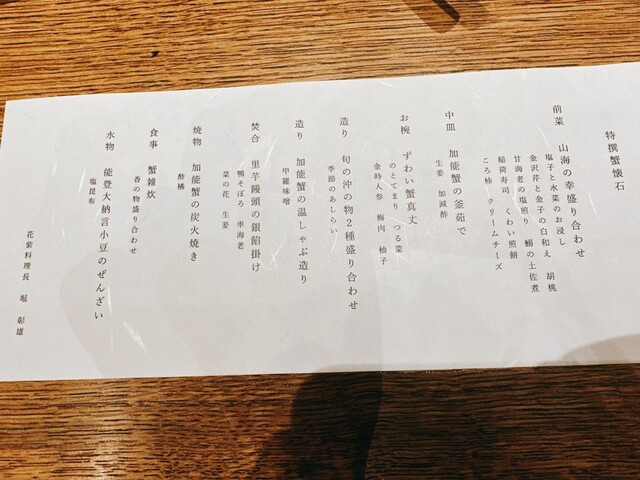 特撰蟹懐石
前菜 山海の幸盛り合わせ
塩子と水菜のお浸し 胡桃
金沢芹と金子の白和え 鰯の土佐煮
甘海老の塩煎り
稲荷寿司 くわい煎餅
ころ柿 クリームチーズ
中皿 加能蟹の釜茹で
生姜 加減酢
お椀 ずわい蟹真丈
のとてまり つる菜
金時人参 梅肉 柚子
造り 旬の沖の物2種盛り合わせ
季節のあしらい
造り 加能蟹の温しゃぶ造り
甲羅味噌
焚合 里芋饅頭の銀餡掛け
鴨そぼろ 車海老
菜の花 生姜
焼物 加能蟹の炭火焼き
酢橘
食事 蟹雑炊
香の物盛り合わせ
水物 能登大納言小豆のぜんざい
塩昆布
花紫料理長 堀 彰雄